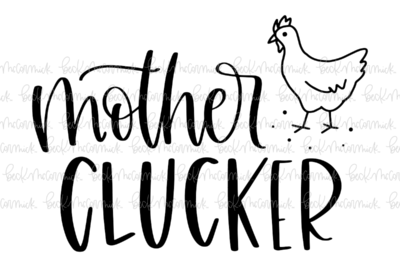 mother
CLUCKER